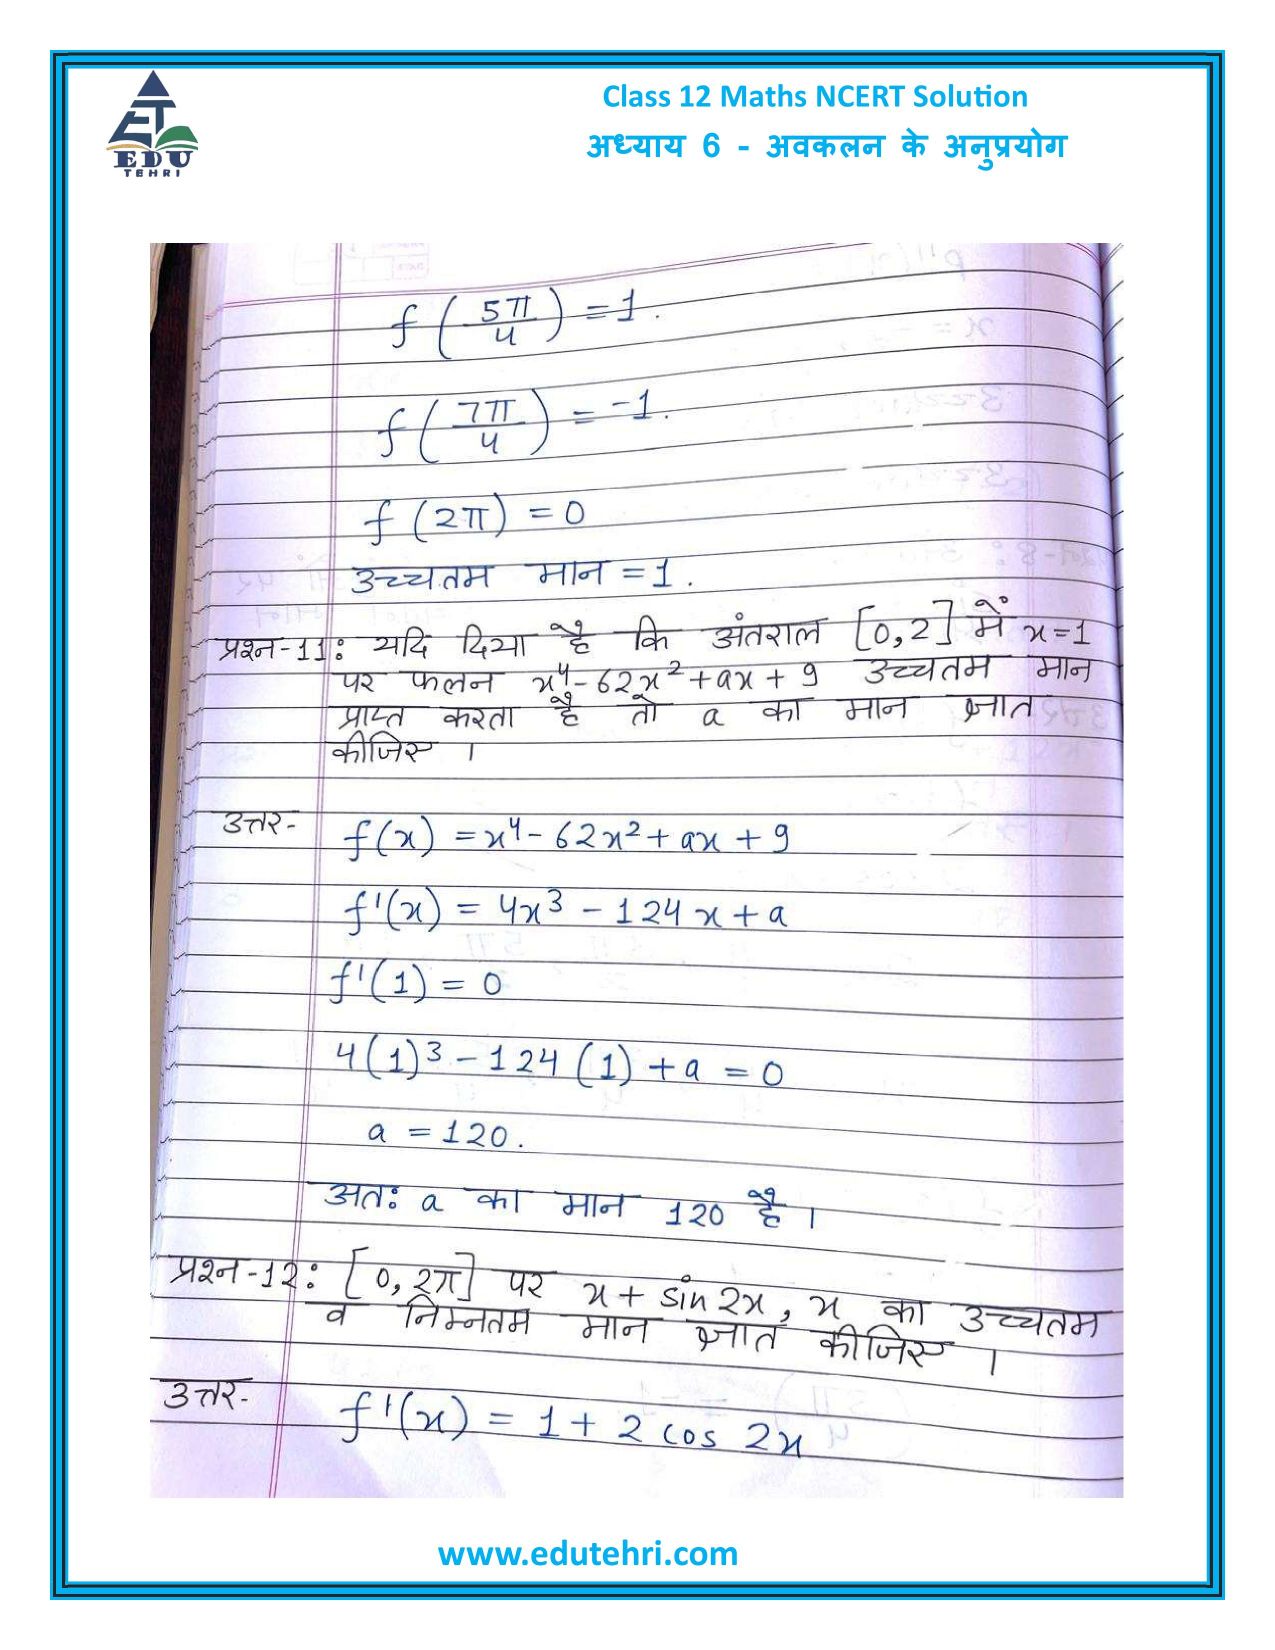 ET
EDU
TEHRI
Class 12 Maths NCERT Solution
अध्याय 6 - अवकलन के अनुप्रयोग
f(5π/4) = 1.
f(7π/4) = -1.
f(2π) = 0
उच्चतम मान = 1.
प्रश्न-11: यदि दिया है कि अंतराल [0,2] में x=1
पर फलन x⁴-62x²+ax+9 उच्चतम मान
प्राप्त करता है तो a का मान ज्ञात
कीजिए ।
उत्तर- f(x) = x⁴-62x²+ax+9
f'(x) = 4x³-124x+a
f'(1) = 0
4(1)³-124(1)+a = 0
a = 120.
अतः a का मान 120 है ।
प्रश्न-12: [0,2π] पर x+sin2x, x का उच्चतम
व निम्नतम मान ज्ञात कीजिए ।
उत्तर- f'(x) = 1+2 cos 2x
www.edutehri.com